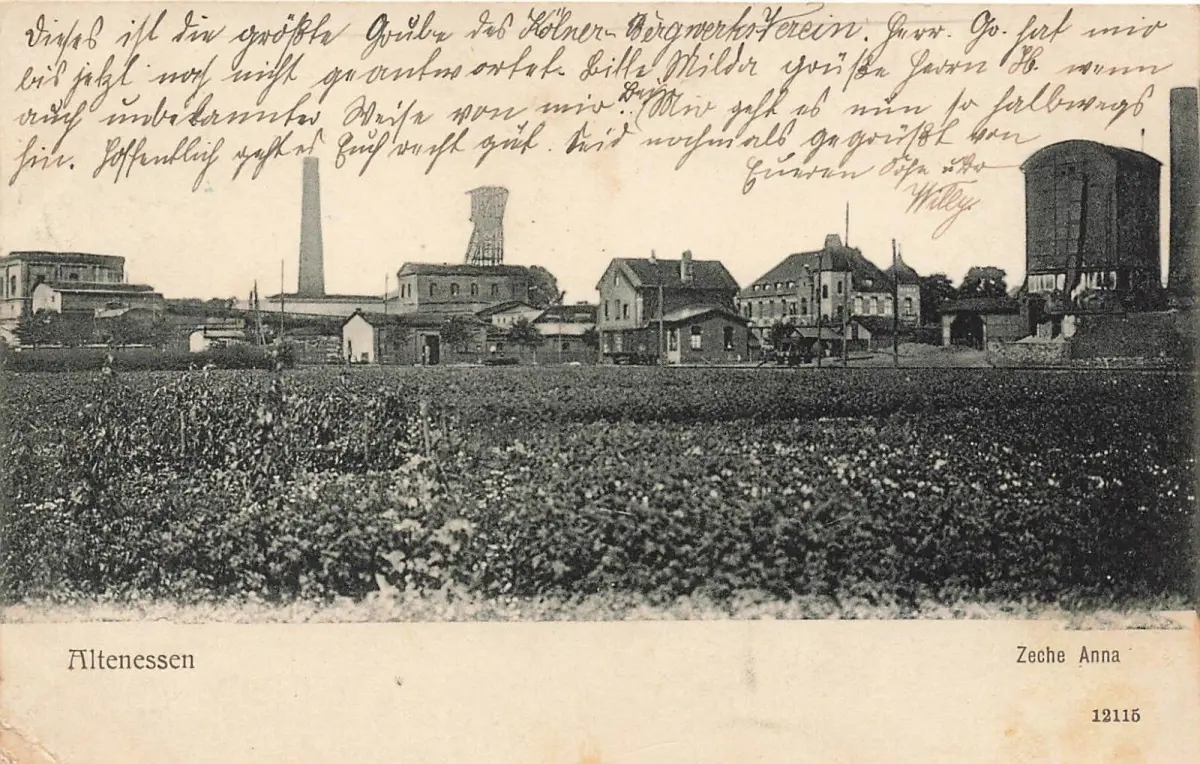 Dieses ist die größte Grube des Kölner-Bergwerks Verein. Herr. Go. hat mir
bis jetzt noch nicht geantwortet. Bitte Milda grüße Herrn H. wenn
auch unbekannter Weise von mir. Mir geht es nun so halbwegs
hin. Hoffentlich geht es Euch recht gut. Seid nochmals gegrüßt von
Eueren Sohn
Willy.
Altenessen
Zeche Anna
12115